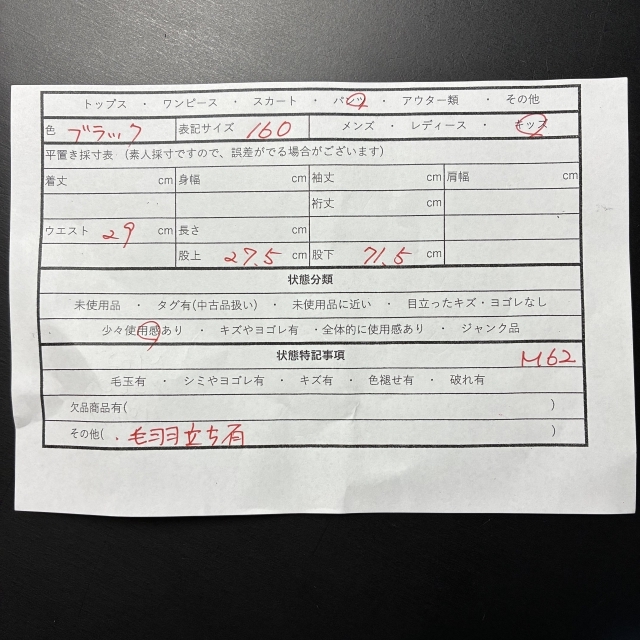 トップス ・ ワンピース ・ スカート ・ パンツ ・ アウター類 ・ その他
色 ブラック 表記サイズ 160 メンズ ・ レディース ・ キッズ
平置き採寸表 (素人採寸ですので、誤差がでる場合がございます)
着丈 cm 身幅 cm 袖丈 cm 肩幅 cm
裄丈 cm
ウエスト 29 cm 長さ cm
股上 27.5 cm 股下 71.5 cm
状態分類
未使用品 ・ タグ有(中古品扱い) ・ 未使用品に近い ・ 目立ったキズ・ヨゴレなし
少々使用感あり ・ キズやヨゴレ有 ・全体的に使用感あり ・ ジャンク品
状態特記事項 M62
毛玉有 ・ シミやヨゴレ有 ・ キズ有 ・ 色褪せ有 ・ 破れ有
欠品商品有( )
その他( ・毛羽立ち有 )